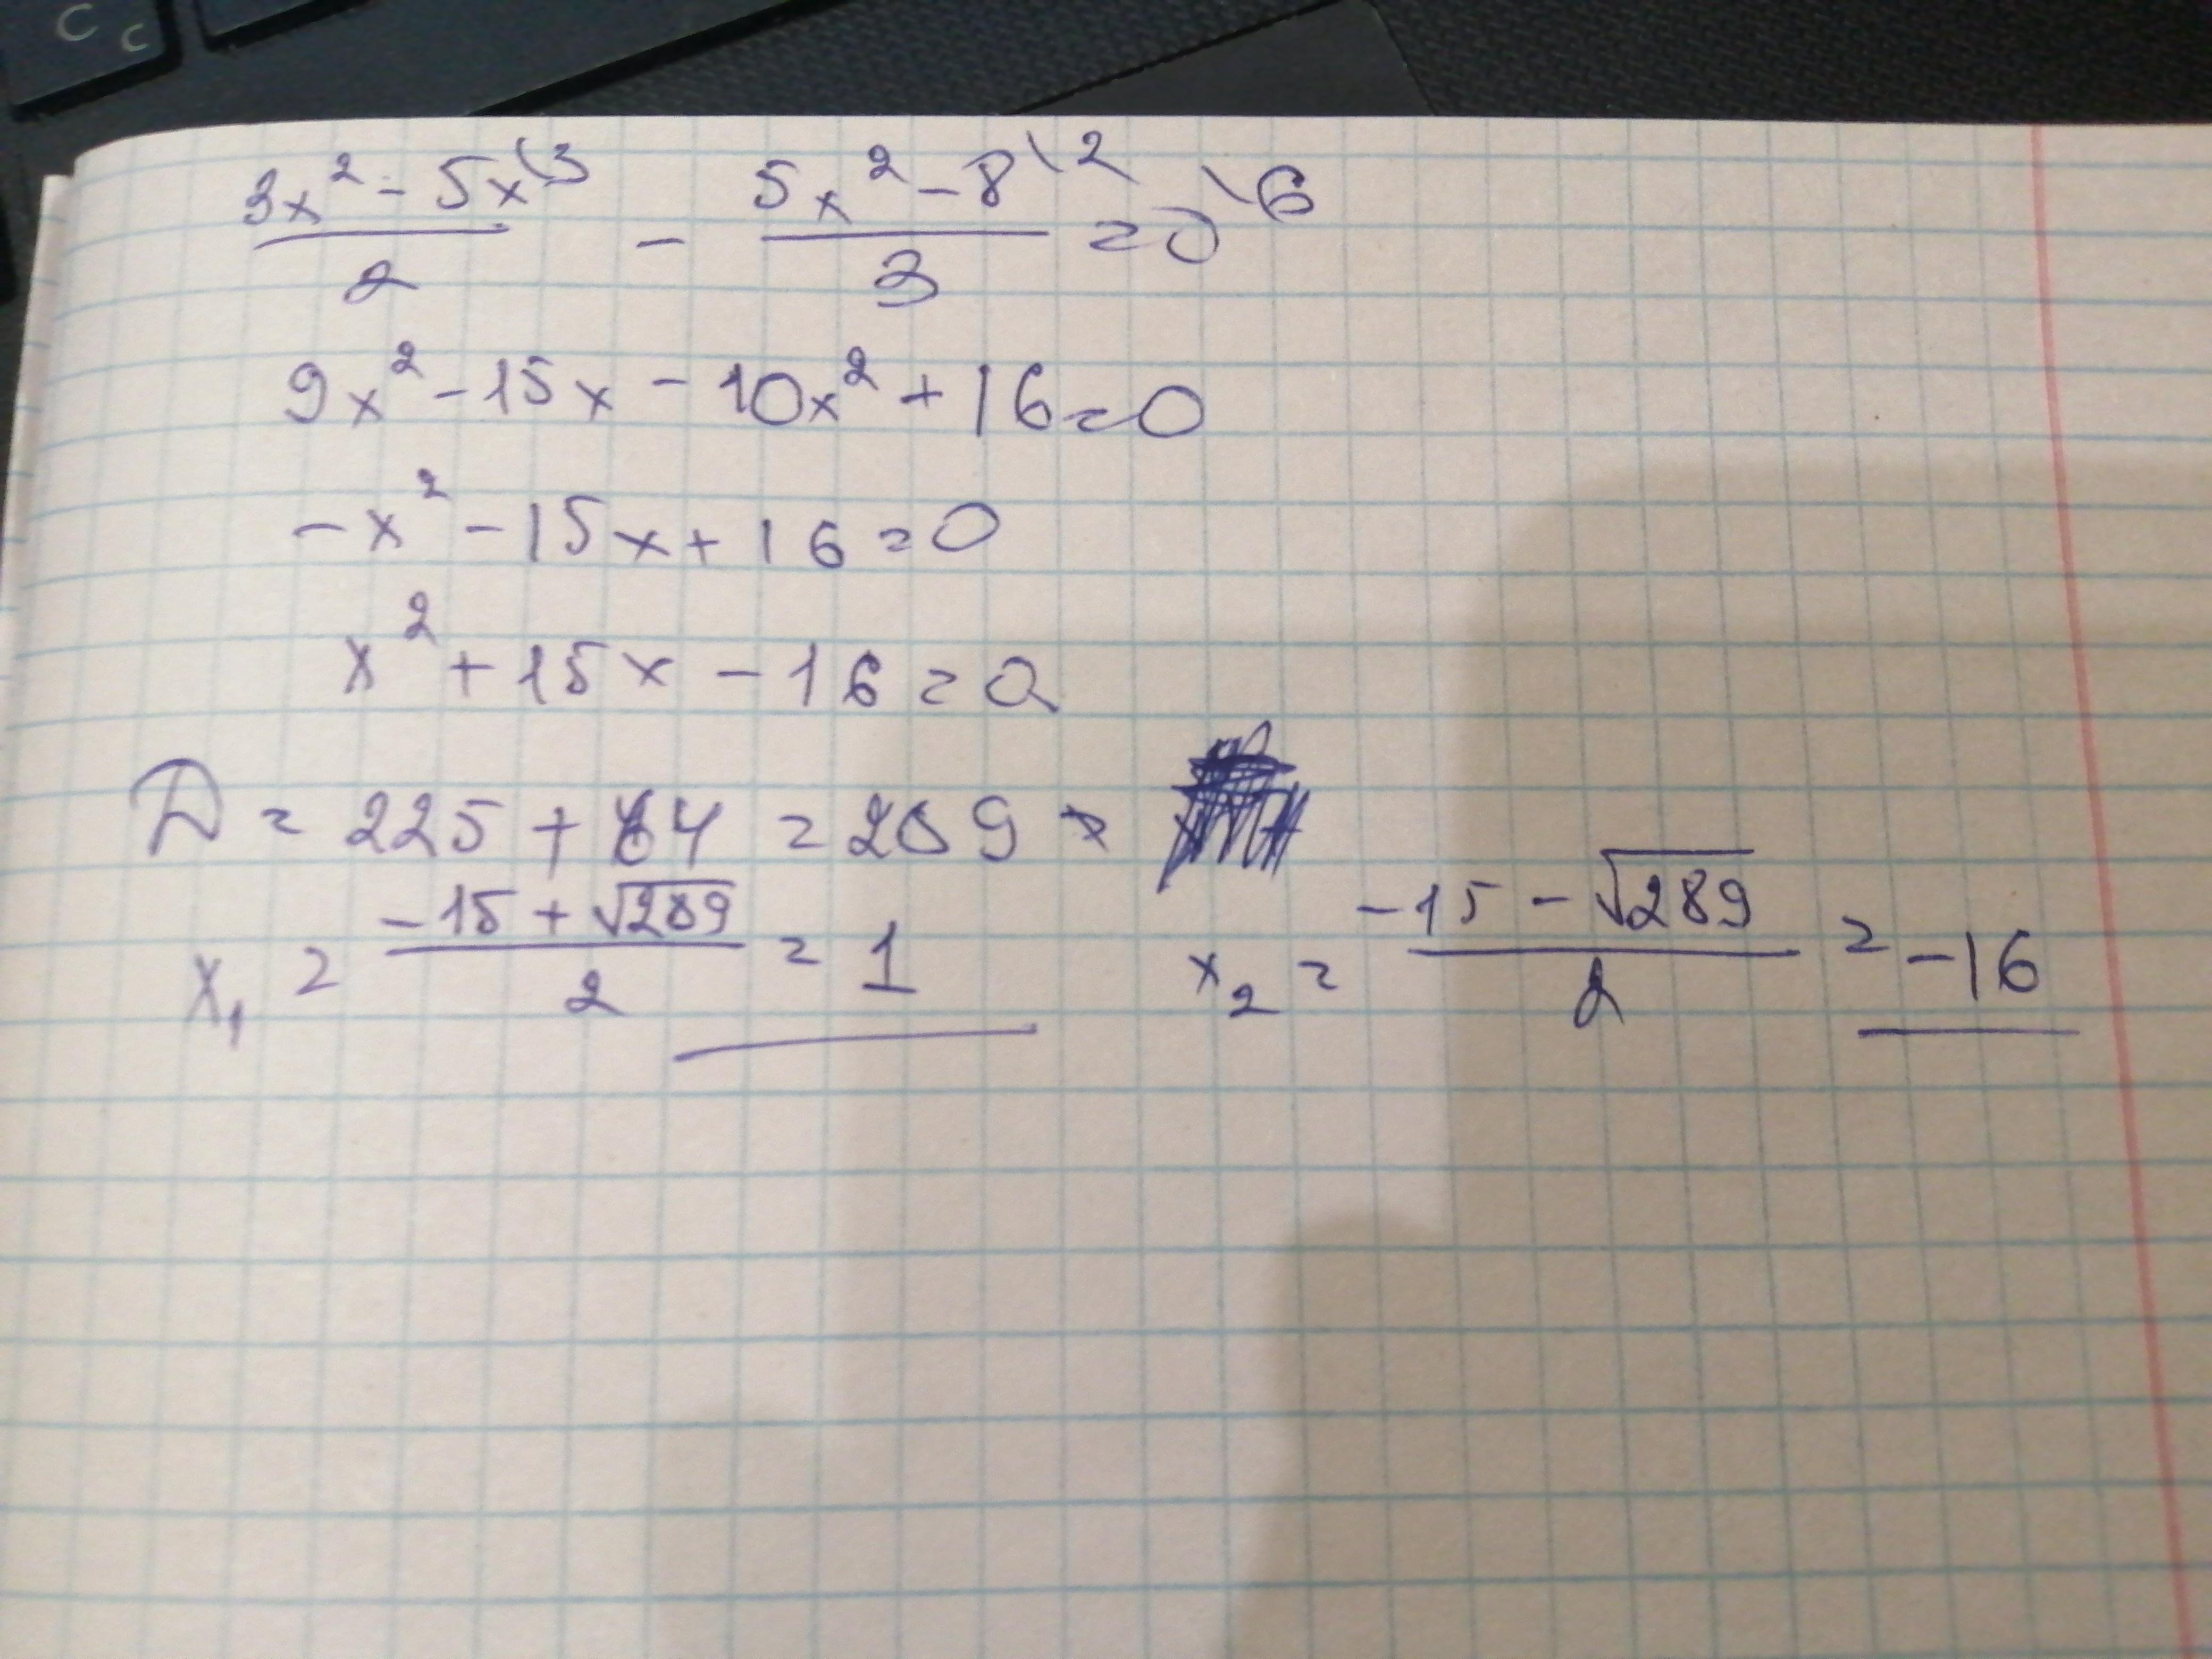 C c
3x² - 5x\3 / 2 - 5x² - 8\2 / 3 = 0\6
9x² - 15x - 10x² + 16 = 0
-x² - 15x + 16 = 0
x² + 15x - 16 = 0
D = 225 + 64 = 289
x₁ = -15 + √289 / 2 = 1 x₂ = -15 - √289 / 2 = -16